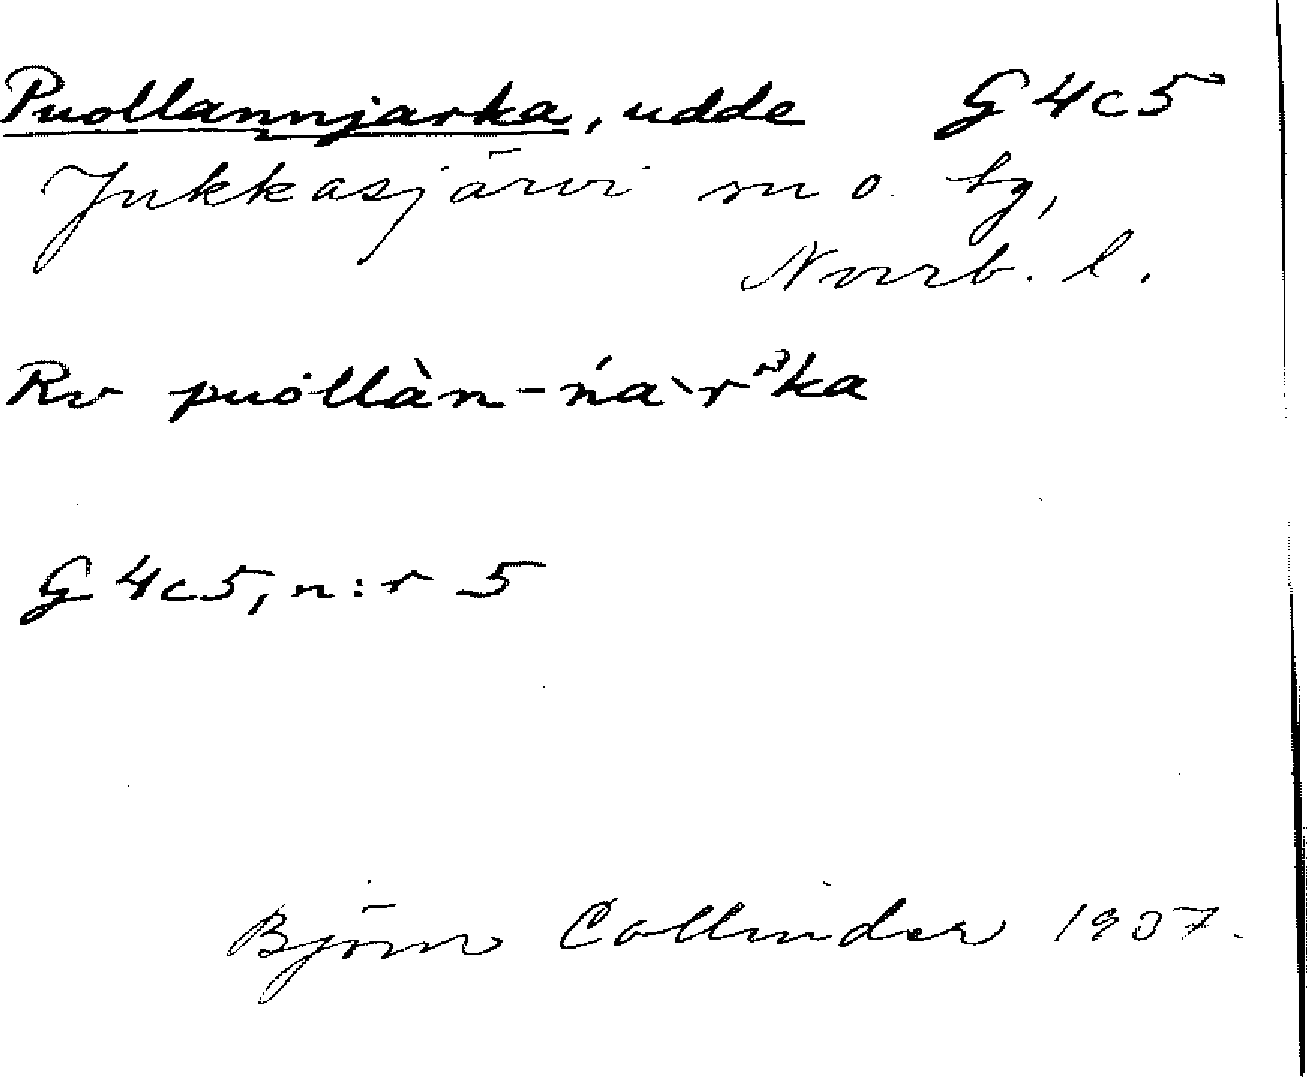 Puollannjarka, udde G4c5
Jukkasjärvi sn o. by,
Norrb. l.
Rv puȯllàn-ńàrᵌka
G4c5, n:r 5
Björn Collinder 1937.